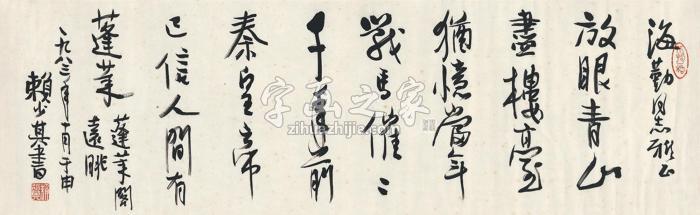 海勤同志雅正
放眼青山
盡樓臺
猶憶當年
戰馬催二
千年前
秦皇帝
已信人間有
蓬萊
蓬萊閣
遠眺
一九八三年十月于申
賴少其書
字画之家
zihuazhijia.com